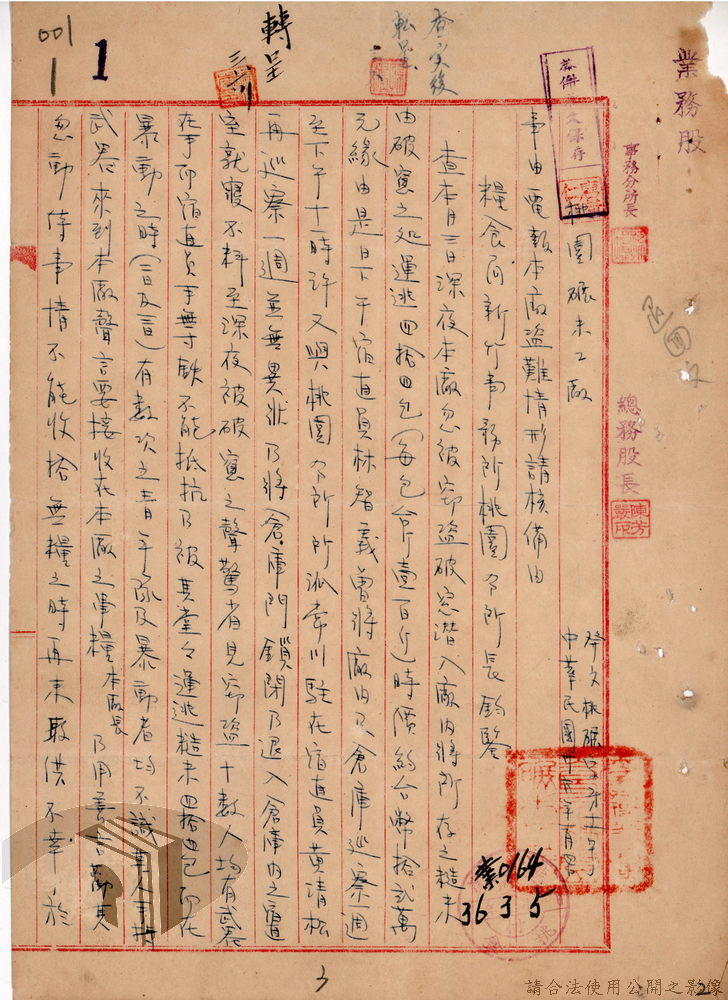 業務股
事務分所長
總務股長
陳芳
文保存
查实後
転呈
轉呈
001
1
1
桃園碾米工廠
發文桃碾
中華民國
事由電報本廠盜難情形請核備由
糧食局新竹事務所桃園分所長鈞鑒
查本月三日深夜本廠忽被窃盜破窓潛入廠內將所存之糙米
由破窓之処運逃四拾四包(每包台斤壹百斤)時價約台幣拾弍萬
元緣由是日下午宿直員林智義曾將廠內及倉庫巡察一週
至下午十一時許又與桃園分所所派常川駐在宿直員黃清松
再巡察一週並無異狀乃將倉庫門鎖閉乃退入倉庫內之宿直
室就寢不料至深夜被破窓之聲驚省見窃盜十數人均有武器
在手而宿直員手無寸鉄不能抵抗乃被其堂々運逃糙米四拾四包而在
暴動之時(二日及三日)有数次之青年隊及暴動者均不識其人手持
武器來到本廠聲言要接收在本廠之軍糧本廠長乃用善言勸其
忽動待事情不能收拾無糧之時再来取供不幸於
0164
36 3 5
3
2
請合法使用公開之影像